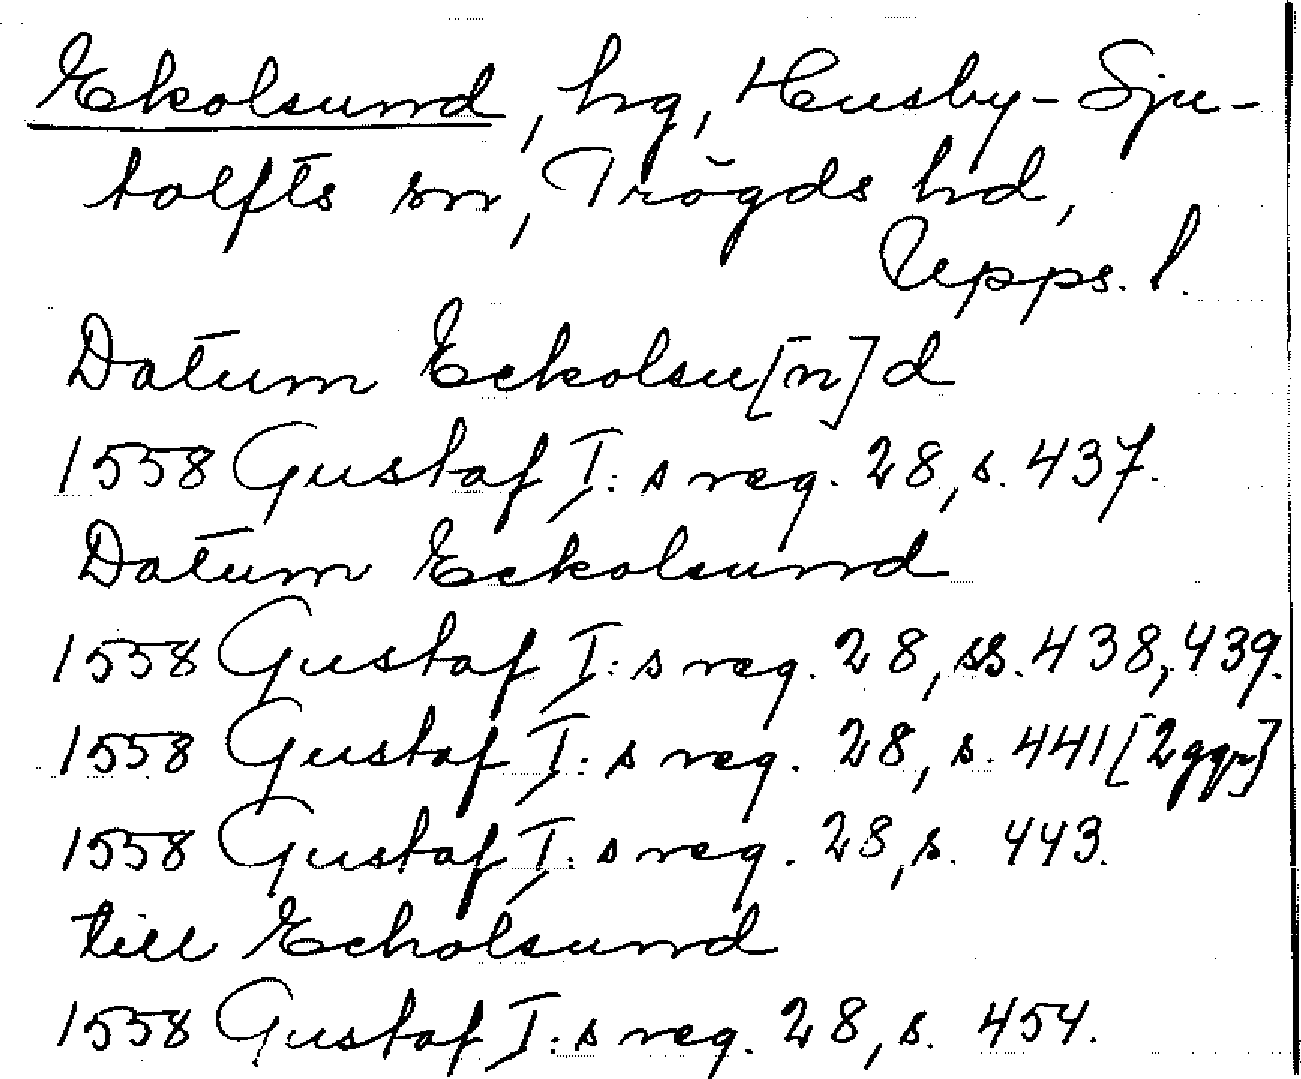 Ekolsund, hg, Husby-Sju-
tolfts sn, Trögds hd,
Upps. l.
Datum Eckolsu[n]d
1558 Gustaf I:s reg. 28, s. 437.
Datum Eckolsund
1558 Gustaf I:s reg. 28, ss. 438, 439.
1558 Gustaf I:s reg. 28, s. 441 [2 ggr]
1558 Gustaf I:s reg. 28, s. 443.
till Echolsund
1558 Gustaf I:s reg. 28, s. 454.